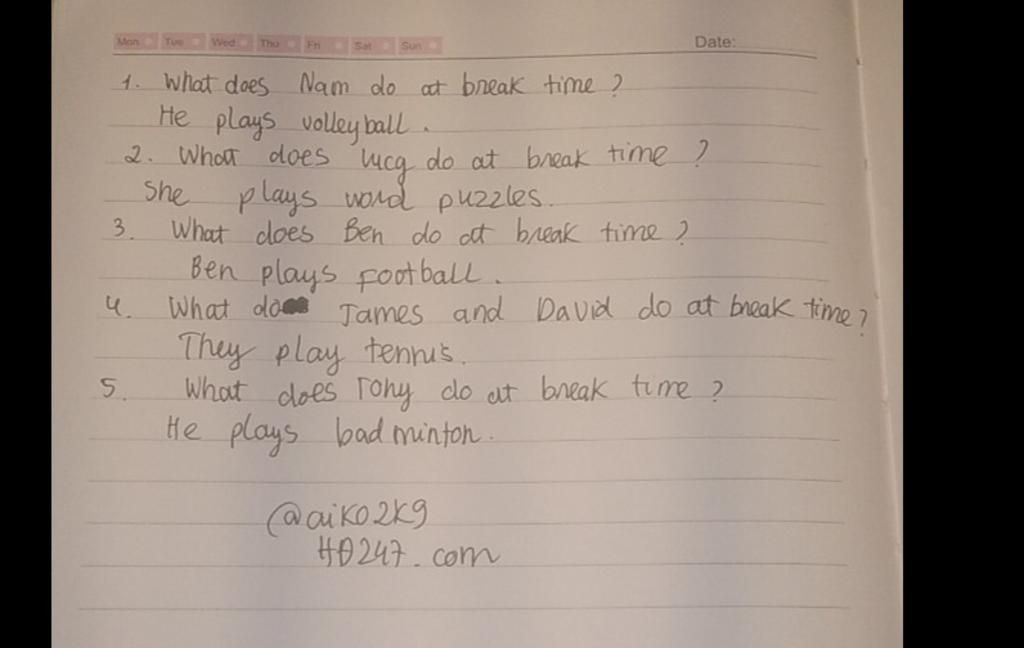 Mon Tue Wed Thu Fri Sat Sun Date:
1. What does Nam do at break time ?
He plays volleyball.
2. What does Lucy do at break time ?
She plays word puzzles.
3. What does Ben do at break time ?
Ben plays football.
4. What do James and David do at break time ?
They play tennis.
5. What does Tony do at break time ?
He plays badminton.
@aiko2k9
HĐ247.com